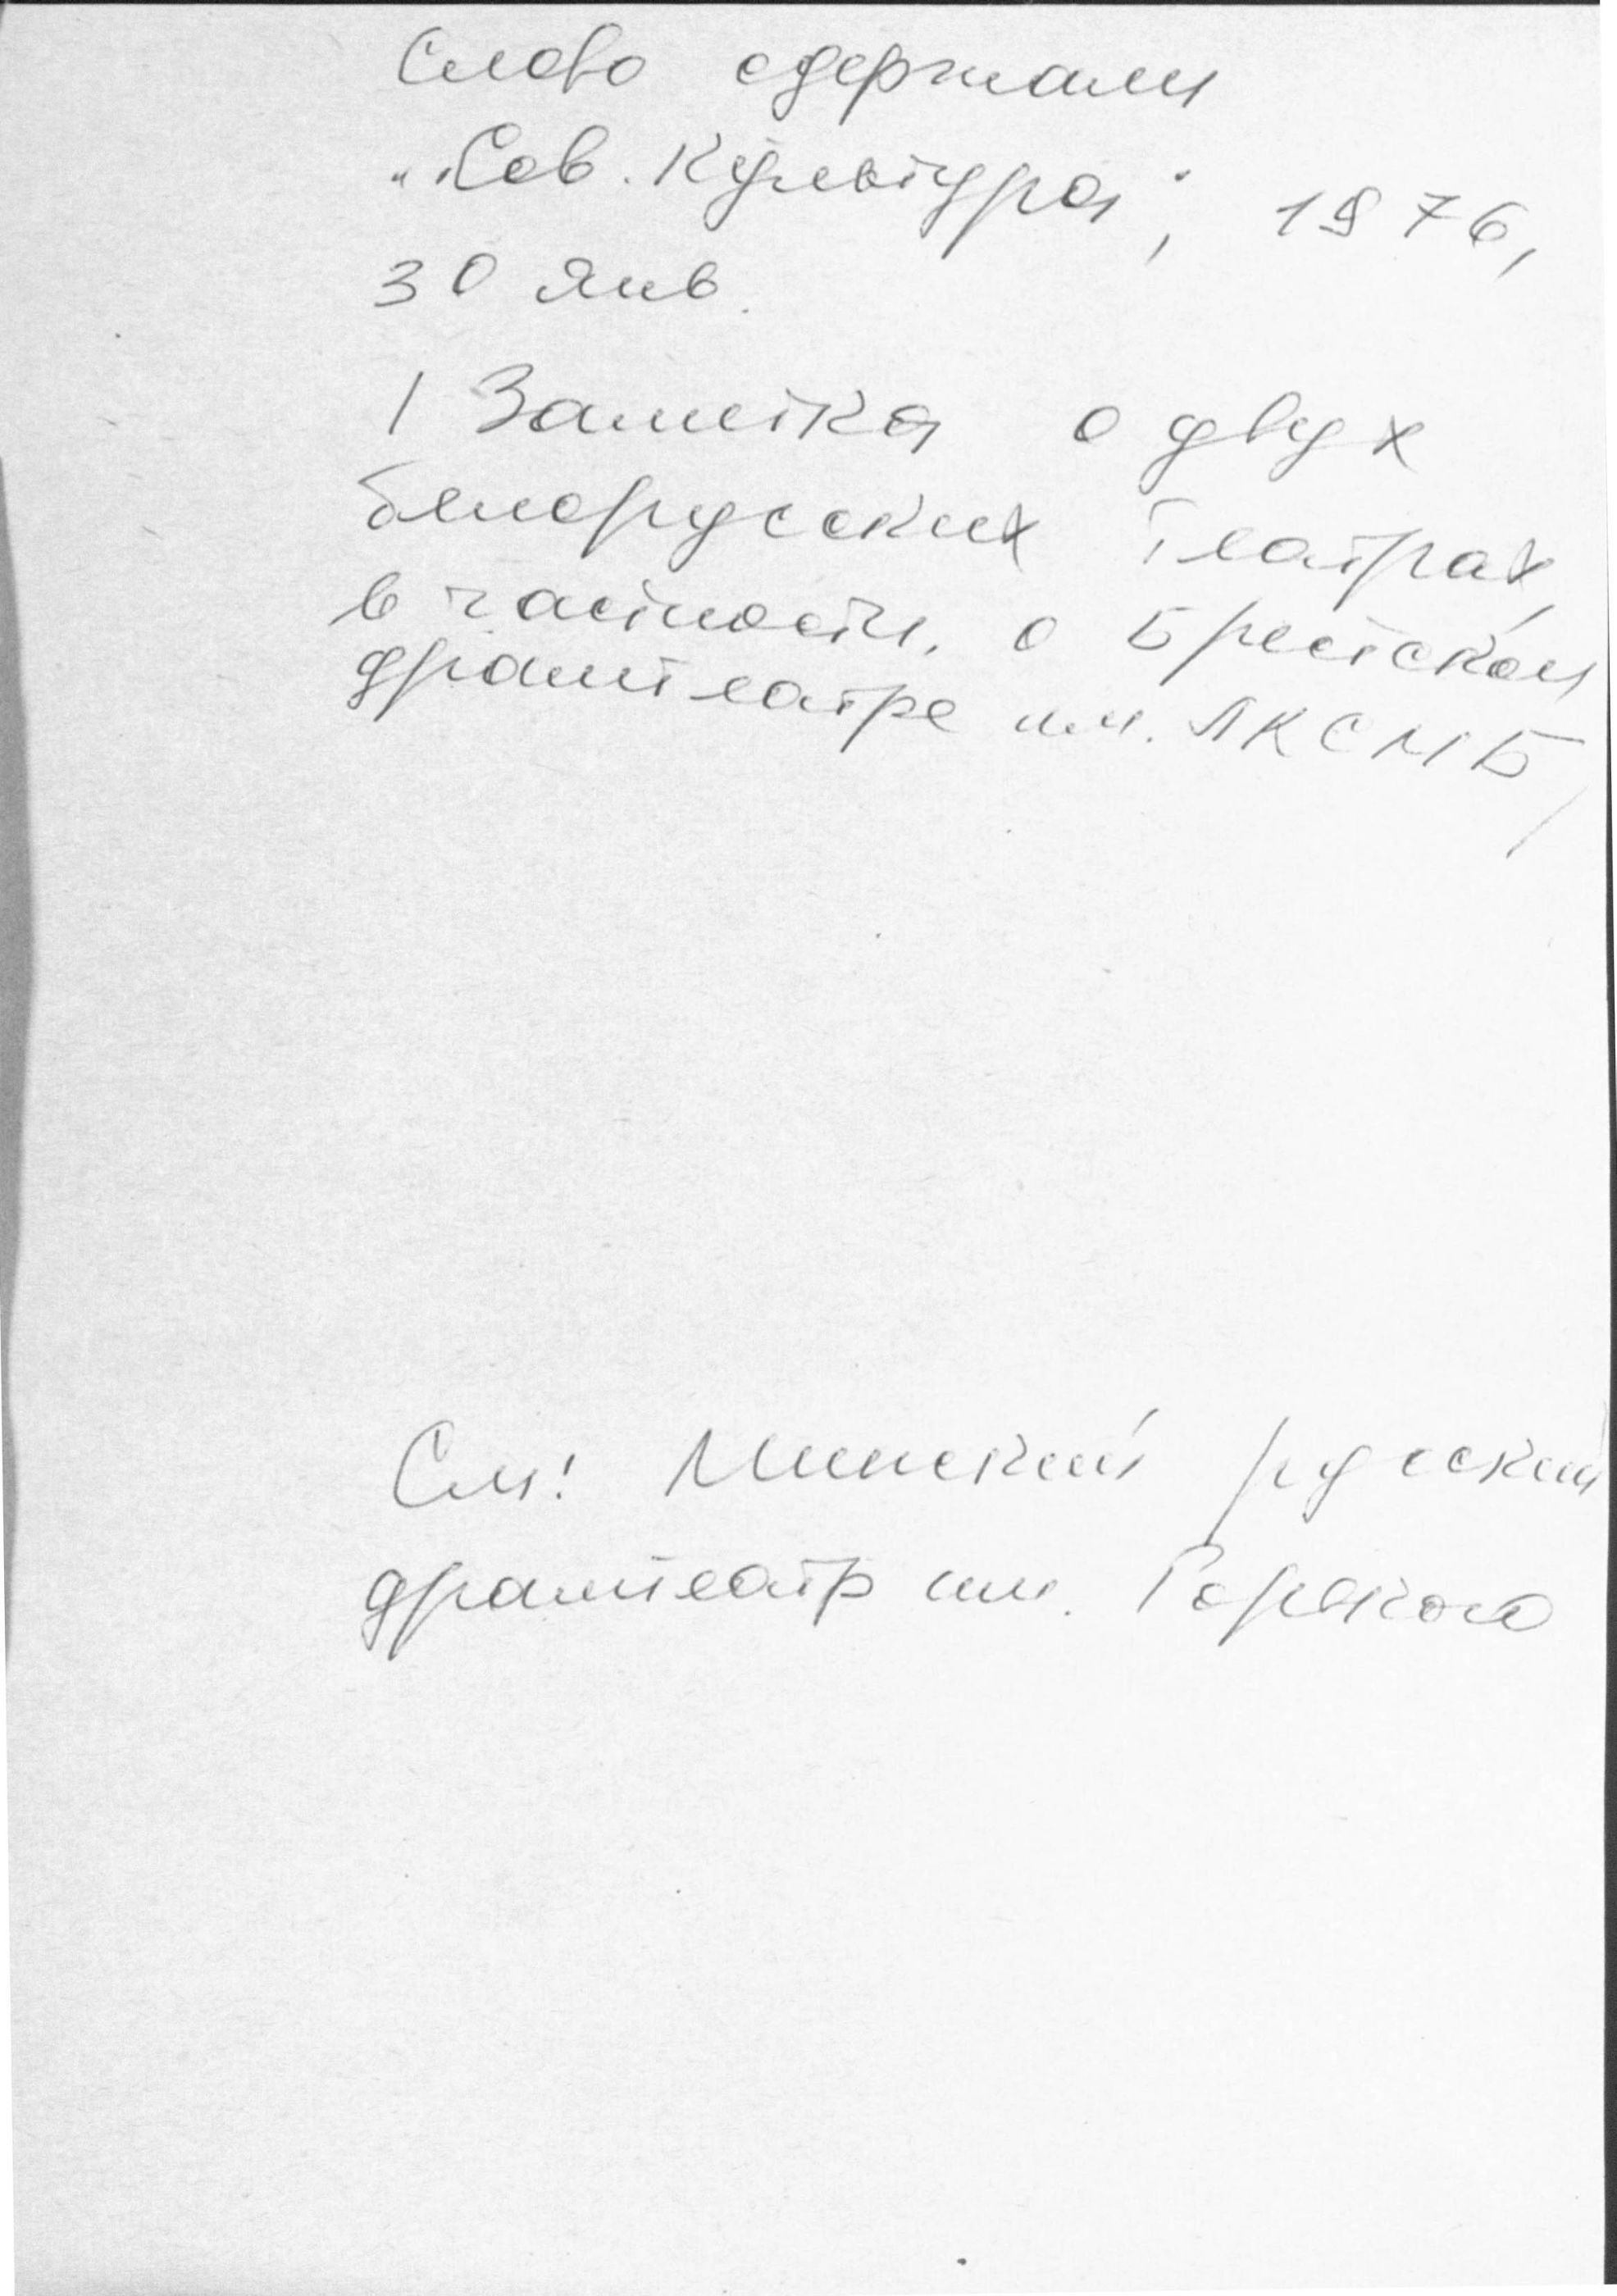 Слово сдержали
"Сов. культура", 1976,
30 янв.
/ Заметка о двух
белорусских театрах,
в частности, о Брестском
драмтеатре им. ЛКСМБ /
См: Минский русский
драмтеатр им. Горького